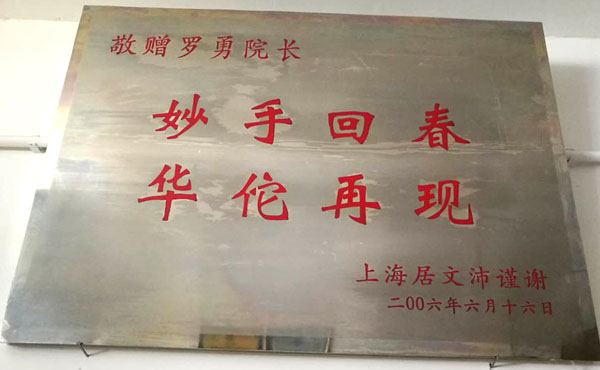 敬赠罗勇院长
妙手回春
华佗再现
上海居文沛谨谢
二00六年六月十六日